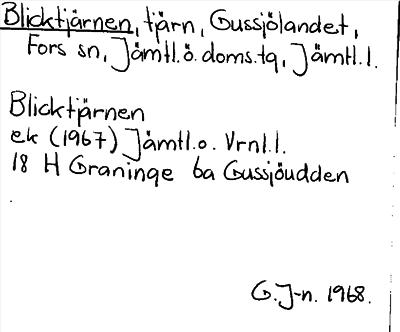 Blicktjärnen, tjärn, Gussjölandet,
Fors sn, Jämtl.ö.doms.tq, Jämtl.l.
Blicktjärnen
ek (1967) Jämtl.o. Vrnl.l.
18 H Graninge 6a Gussjöudden
G.J-n. 1968.